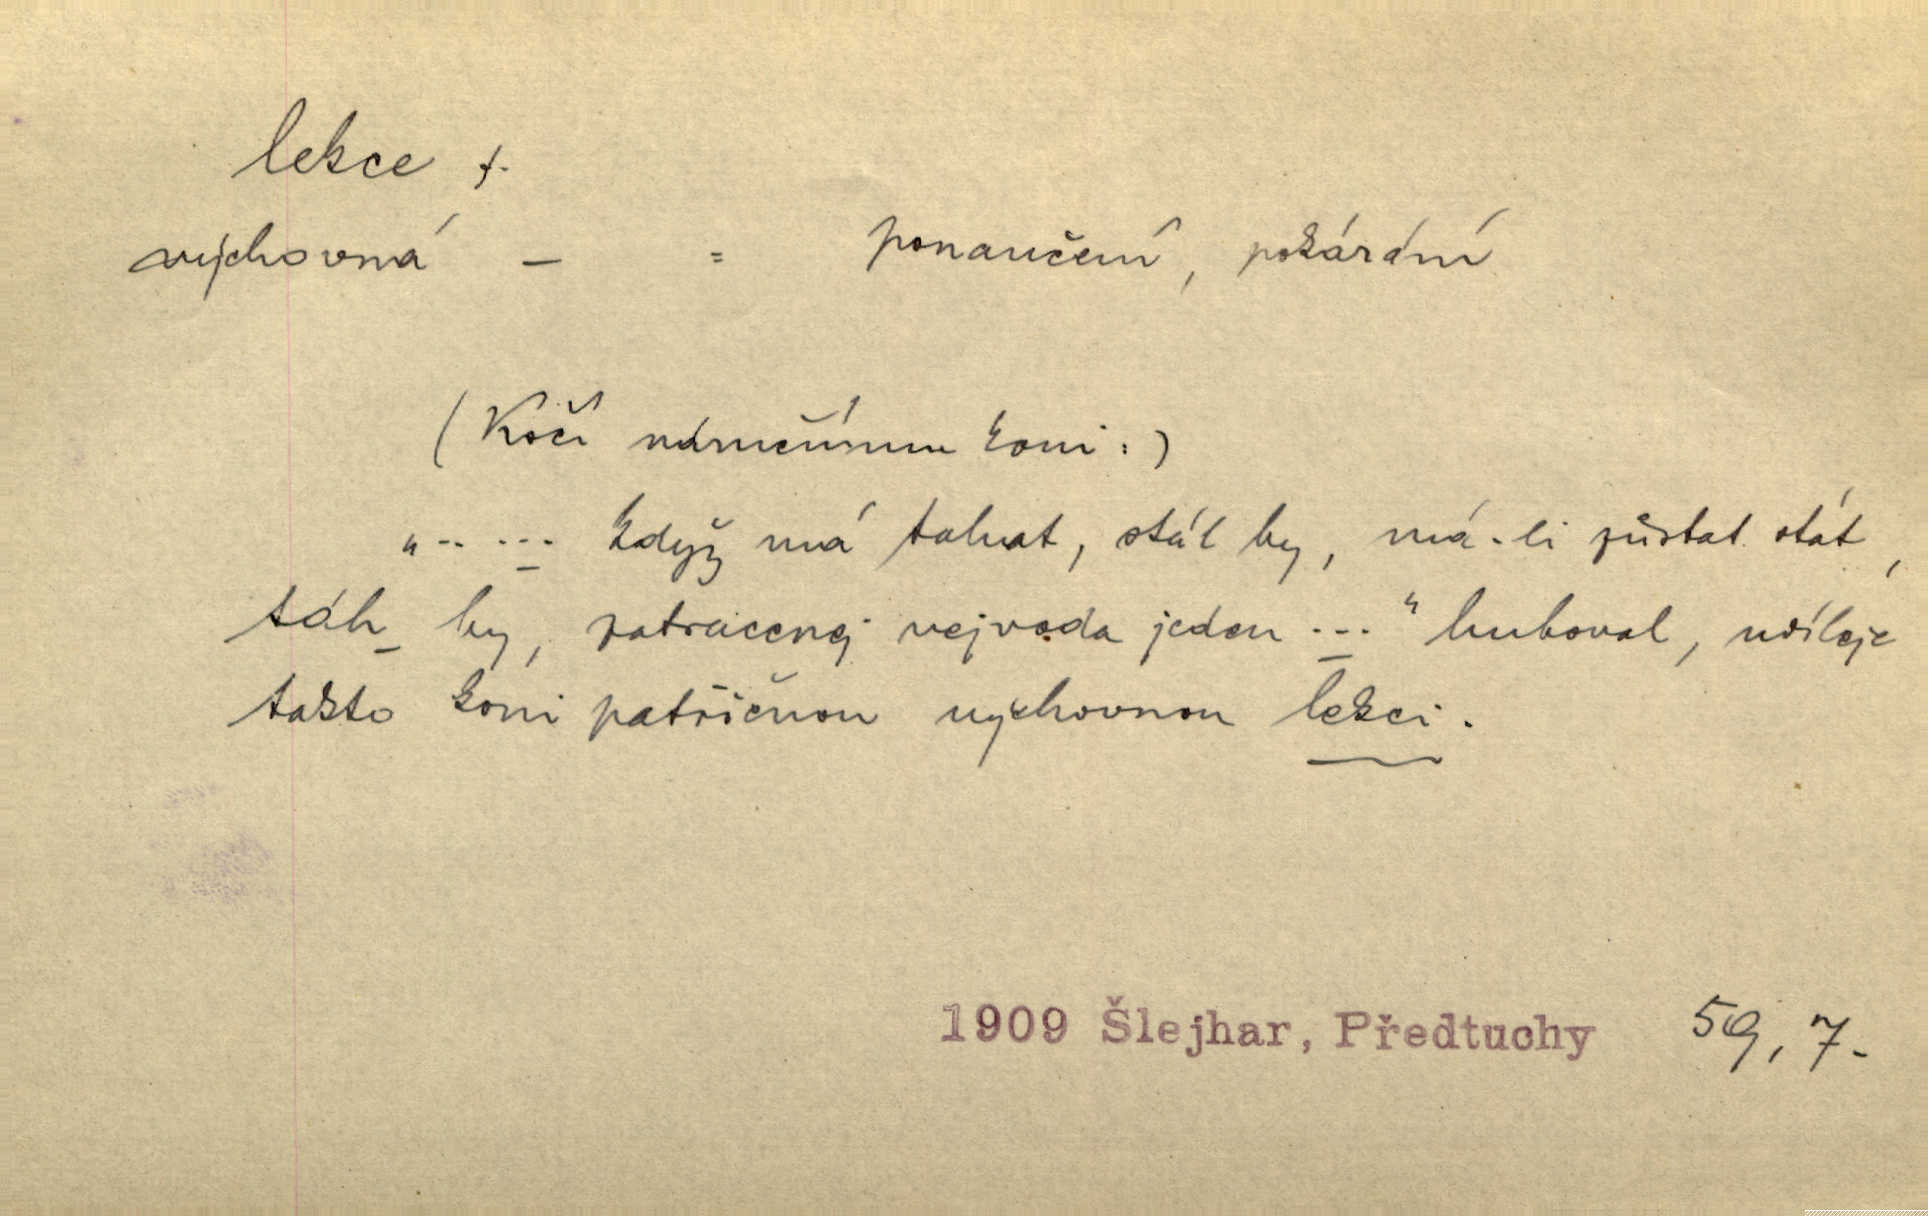 lekce f.
výchovná – = ponaučení, pokárání
(Kočí náručnímu koni:)
"‥ … když má tahat, stál by, má-li zůstat stát,
táh by, zatracenej vejvoda jeden …" huboval, uděleje
takto koni patřičnou výchovnou lekci.
1909 Šlejhar, Předtuchy 59, 7.